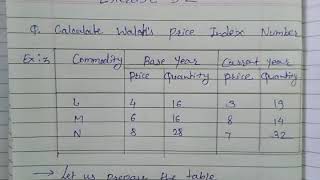 Q. Calculate Walsh's Price Index Number
Ex:- Commodity Base Year Current year
Price Quantity price Quantity
L 4 16 3 19
M 6 16 8 14
N 8 28 7 32
→ Let us prepare the table